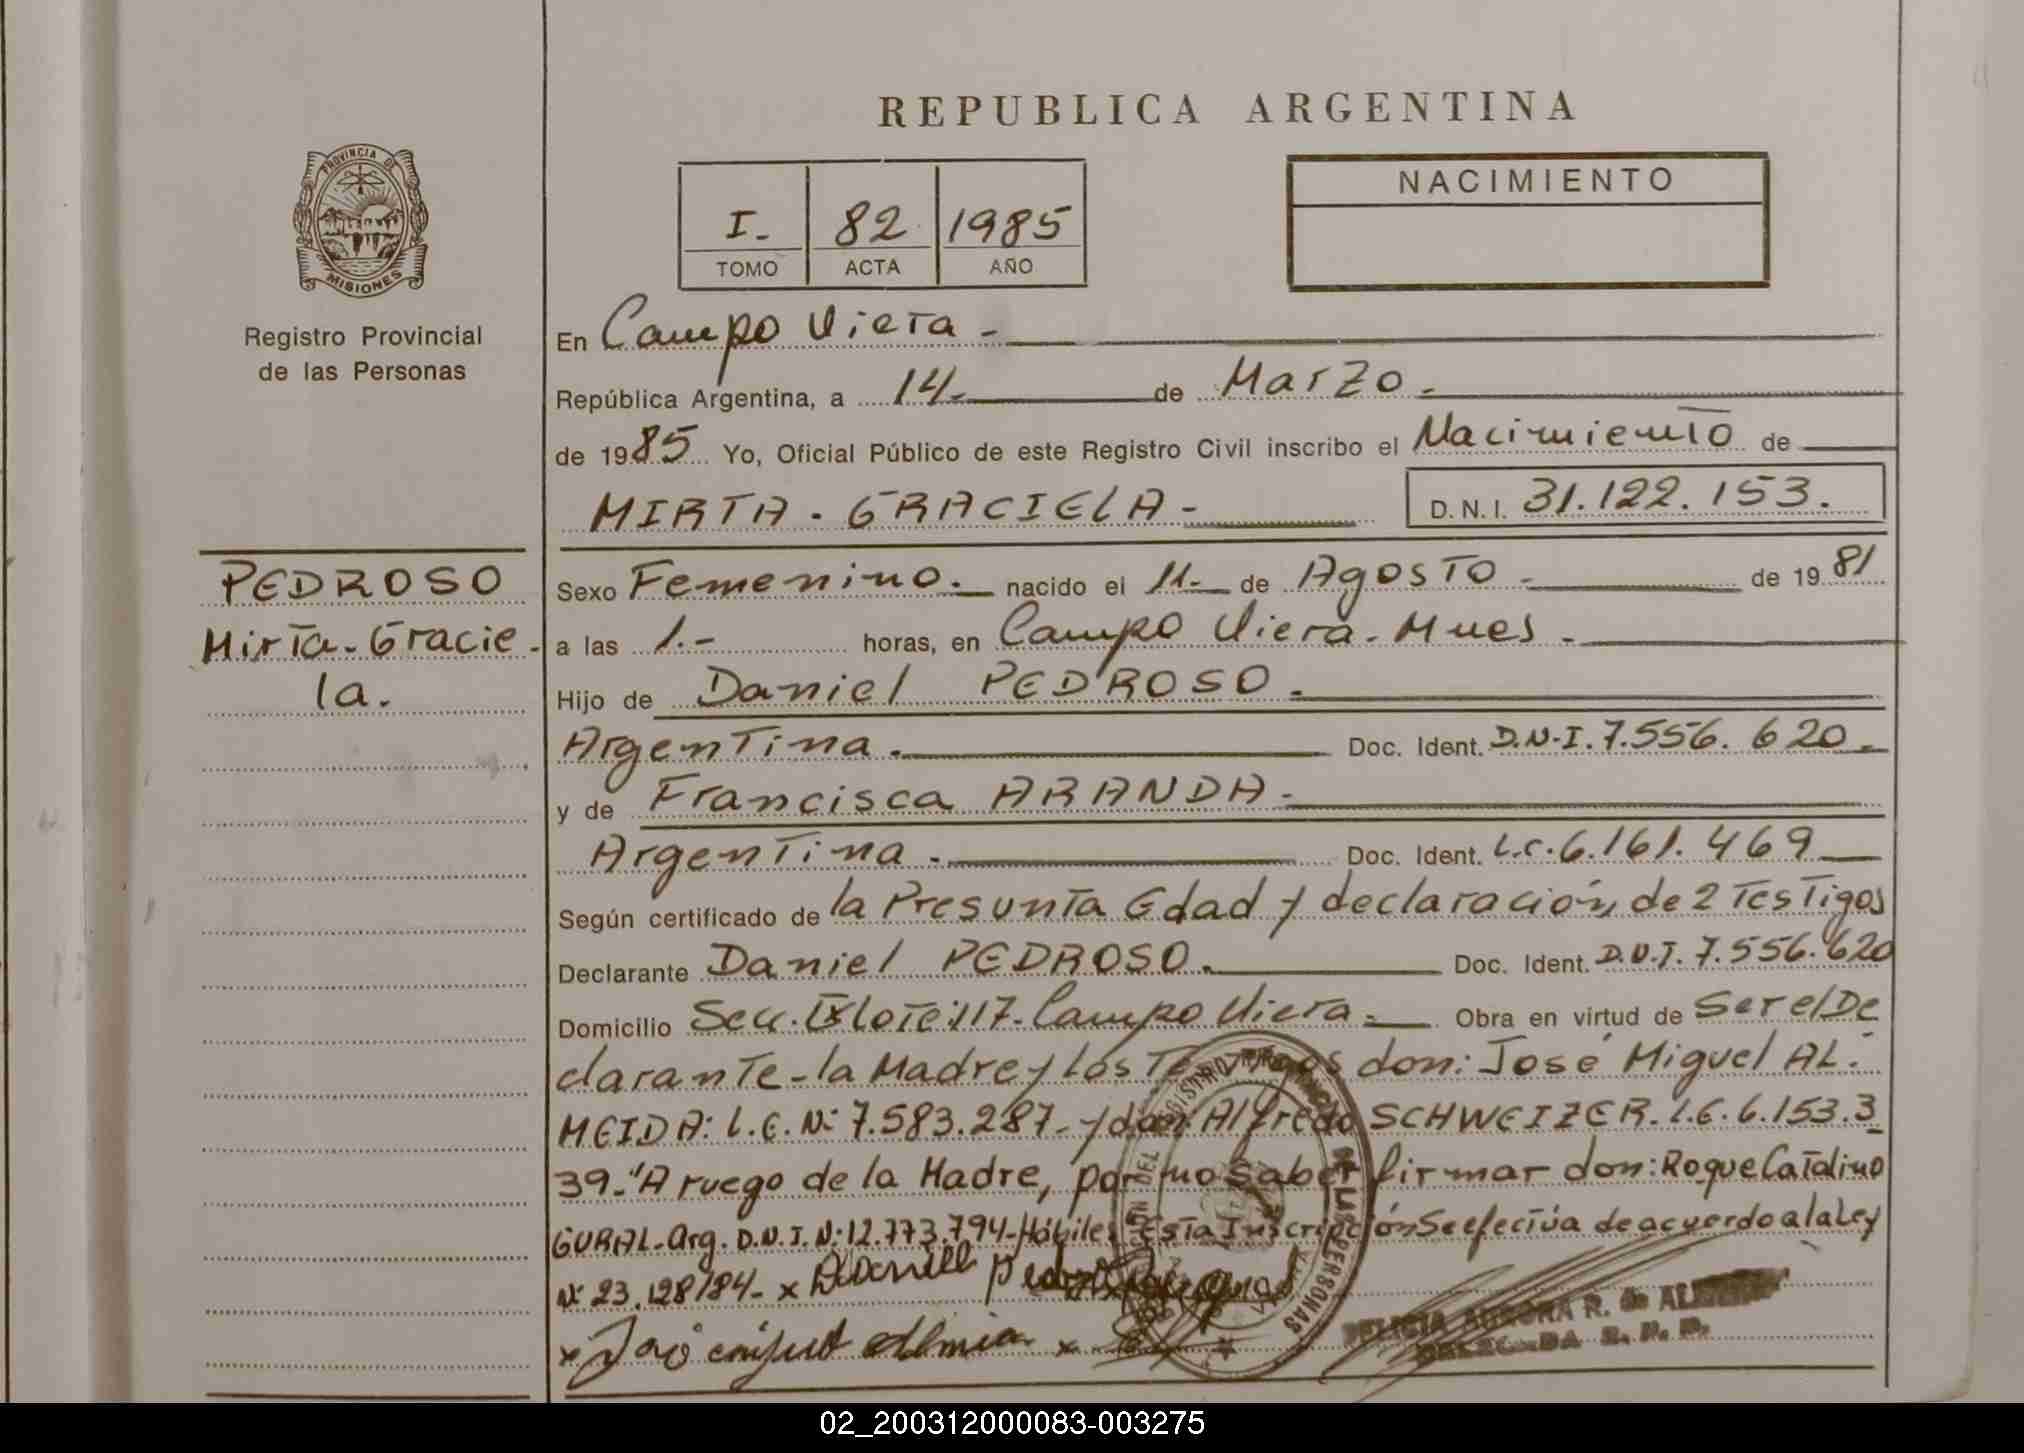 REPUBLICA ARGENTINA
PROVINCIA DE
MISIONES
Registro Provincial
de las Personas
I.- 82 1985
TOMO ACTA AÑO
NACIMIENTO
En Campo Viera -
República Argentina, a 14.- de Marzo.-
de 1985 Yo, Oficial Público de este Registro Civil inscribo el Nacimiento de
MIRTA - GRACIELA - D.N.I. 31.122.153.
PEDROSO
Mirta - Gracie -
la.
Sexo Femenino.- nacido el 11.- de Agosto - de 1981
a las 1.- horas, en Campo Viera - Mnes -
Hijo de Daniel PEDROSO.-
Argentina.- Doc. Ident. D.N.I. 7.556.620.-
y de Francisca ARANDA -
Argentina.- Doc. Ident. L.C. 6.161.469
Según certificado de la Presunta Edad y declaración, de 2 Testigos
Declarante Daniel PEDROSO.- Doc. Ident. D.N.I. 7.556.620
Domicilio Secc. IX Lote: 117 - Campo Viera.- Obra en virtud de Ser el De
clarante - la Madre y Los Testigos don: José Miguel AL-
MEIDA: L.E. Nº 7.583.287 - y don: Alfredo SCHWEIZER. L.E. 6.153.3
39.- "A ruego de la Madre, por no Saber firmar don: Roque Catalino
GURAL - Arg. D.N.I. Nº 12.773.794 - Hábiles Esta Inscripción Se efectúa de acuerdo a la Ley
Nº 23.128/84 - x
x
x
REGISTRO
DE LAS PERSONAS
FELICIA AURORA R. de
DELEGADA R. P. P.
02_200312000083-003275